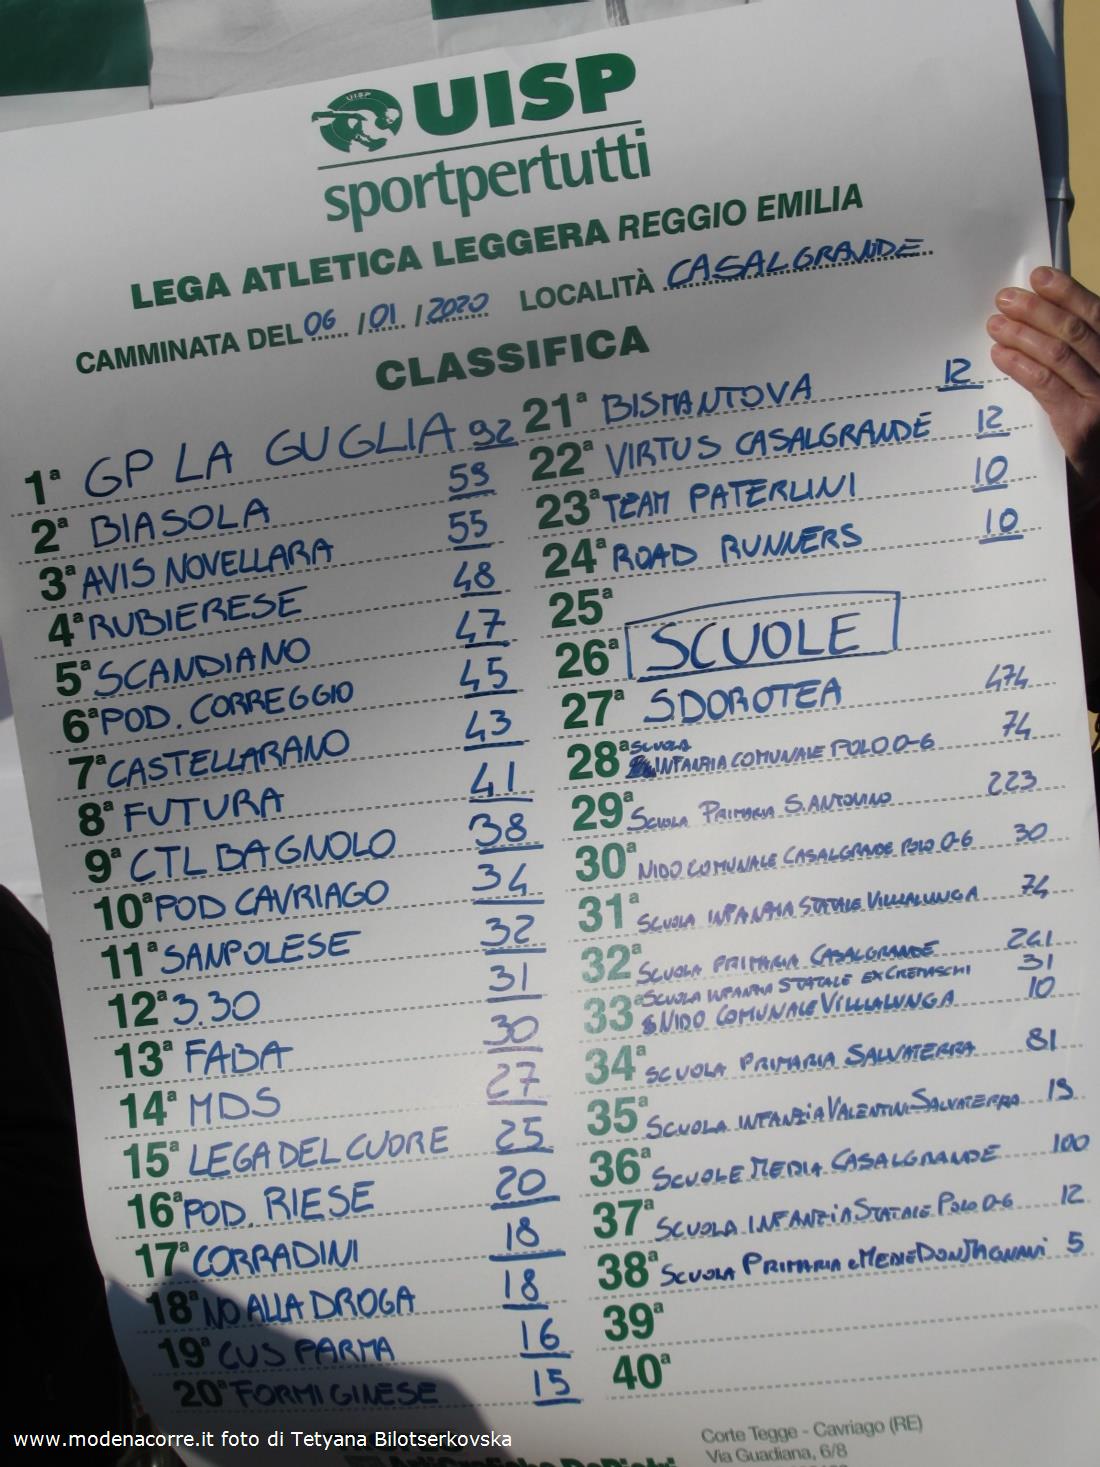 UISP
UISP
sportpertutti
LEGA ATLETICA LEGGERA REGGIO EMILIA
CAMMINATA DEL 06 / 01 / 2020 LOCALITÀ CASALGRANDE
CLASSIFICA
1ª GP LA GUGLIA 92
2ª BIASOLA 59
3ª AVIS NOVELLARA 55
4ª RUBIERESE 48
5ª SCANDIANO 47
6ª POD. CORREGGIO 45
7ª CASTELLARANO 43
8ª FUTURA 41
9ª CTL BAGNOLO 38
10ª POD CAVRIAGO 34
11ª SANPOLESE 32
12ª 3.30 31
13ª FABA 30
14ª MDS 27
15ª LEGA DEL CUORE 25
16ª POD. RIESE 20
17ª CORRADINI 18
18ª NO ALLA DROGA 18
19ª CUS PARMA 16
20ª FORMIGINESE 15
21ª BISMANTOVA 12
22ª VIRTUS CASALGRANDE 12
23ª TEAM PATERLINI 10
24ª ROAD RUNNERS 10
25ª
26ª SCUOLE
27ª S.DOROTEA 474
28ª SCUOLA
INFANZIA COMUNALE POLO 0-6 74
29ª SCUOLA PRIMARIA S. ANTONINO 223
30ª NIDO COMUNALE CASALGRANDE POLO 0-6 30
31ª SCUOLA INFANZIA STATALE VILLALUNGA 74
32ª SCUOLA PRIMARIA CASALGRANDE 241
33ª SCUOLA INFANZIA STATALE EX CREMASCHI 31
NIDO COMUNALE VILLALUNGA 10
34ª SCUOLA PRIMARIA SALVATERRA 81
35ª SCUOLA INFANZIA VALENTINI SALVATERRA 19
36ª SCUOLE MEDIA CASALGRANDE 100
37ª SCUOLA INFANZIA STATALE POLO 0-6 12
38ª SCUOLA PRIMARIA e MEDIE DON MAGNANI 5
39ª
40ª
Corte Tegge - Cavriago (RE)
Via Guadiana, 6/8
www.modenacorre.it foto di Tetyana Bilotserkovska